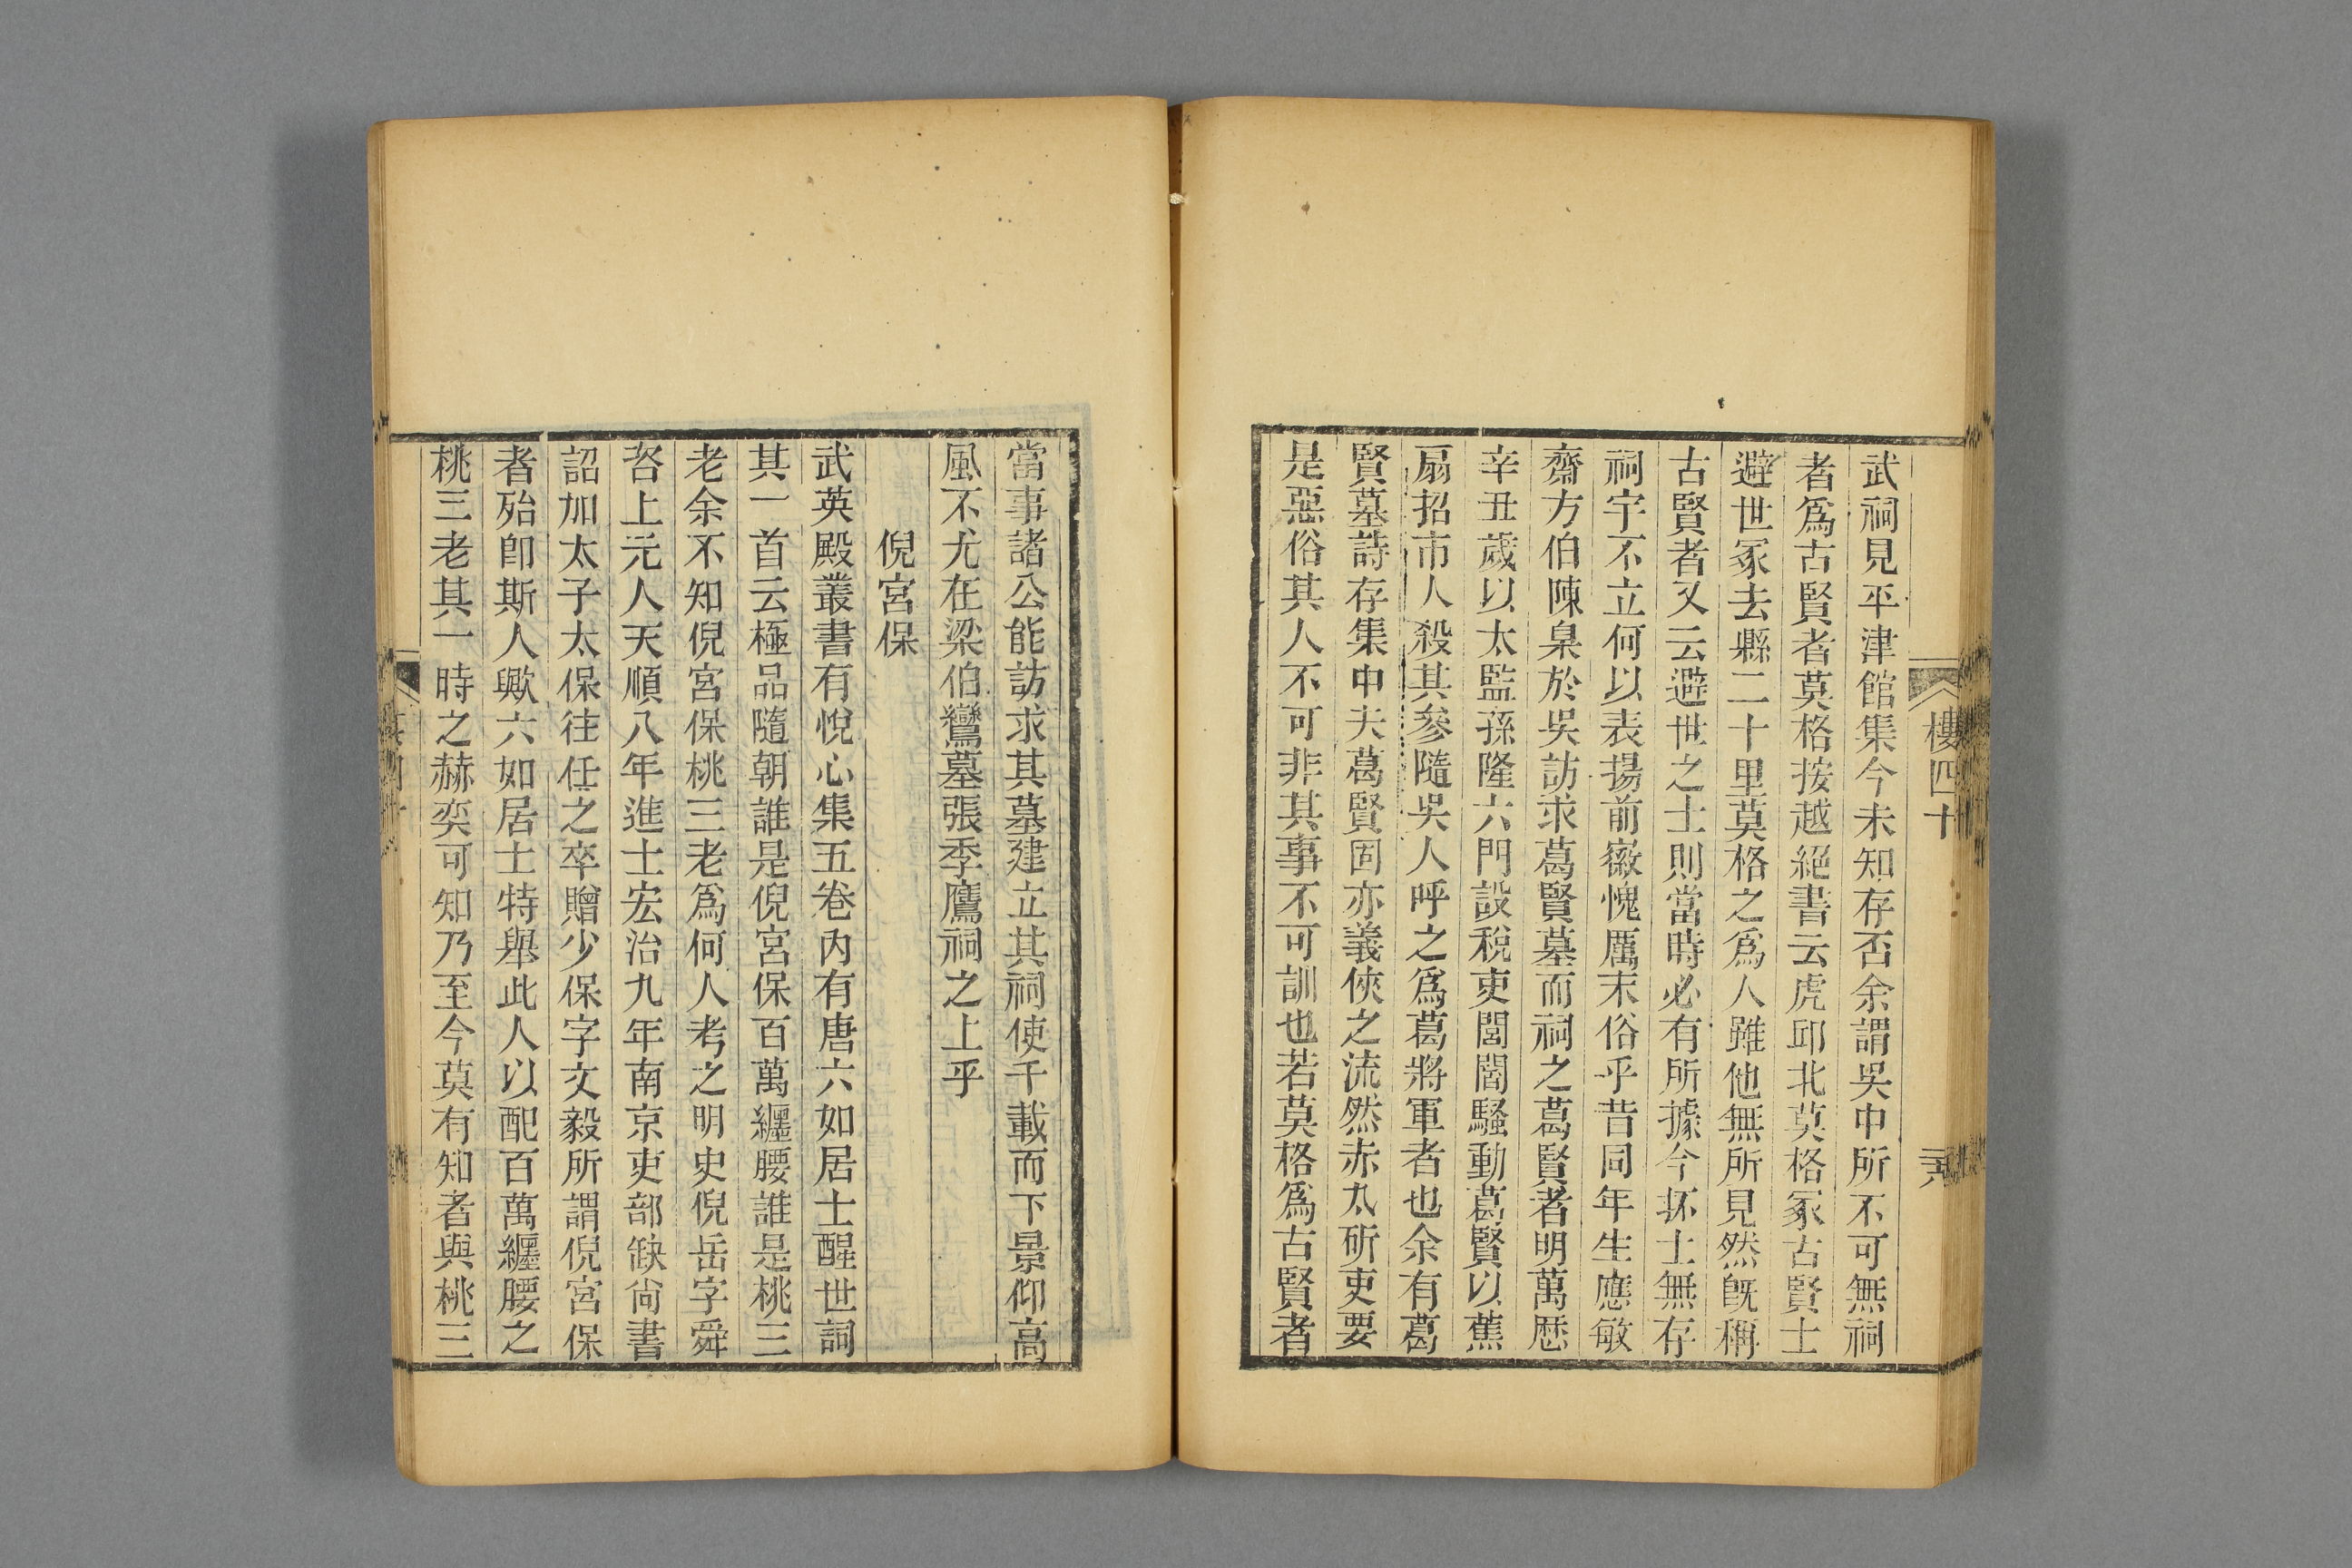 樓四十
武祠見平津館集今未知存否余謂吳中所不可無祠
者爲古賢者莫格按越絕書云虎邱北莫格冢古賢士
避世冢去縣二十里莫格之爲人雖他無所見然旣稱
古賢者又云避世之士則當時必有所據今抔土無存
祠宇不立何以表揚前徽愧厲末俗乎昔同年生應敏
齋方伯陳臬於吳訪求葛賢墓而祠之葛賢者明萬厯
辛丑歲以太監孫隆六門設稅吏閭閻騷動葛賢以蕉
扇招市人殺其參隨吳人呼之爲葛將軍者也余有葛
賢墓詩存集中夫葛賢固亦義俠之流然赤丸斫吏要
是惡俗其人不可非其事不可訓也若莫格爲古賢者
當事諸公能訪求其墓建立其祠使千載而下景仰高
風不尤在梁伯鸞墓張季鷹祠之上乎
倪宮保
武英殿叢書有悅心集五卷內有唐六如居士醒世詞
其一首云極品隨朝誰是倪宮保百萬纏腰誰是桃三
老余不知倪宮保桃三老爲何人考之明史倪岳字舜
咨上元人天順八年進士宏治九年南京吏部缺尙書
詔加太子太保往任之卒贈少保字文毅所謂倪宮保
者殆卽斯人歟六如居士特舉此人以配百萬纏腰之
桃三老其一時之赫奕可知乃至今莫有知者與桃三